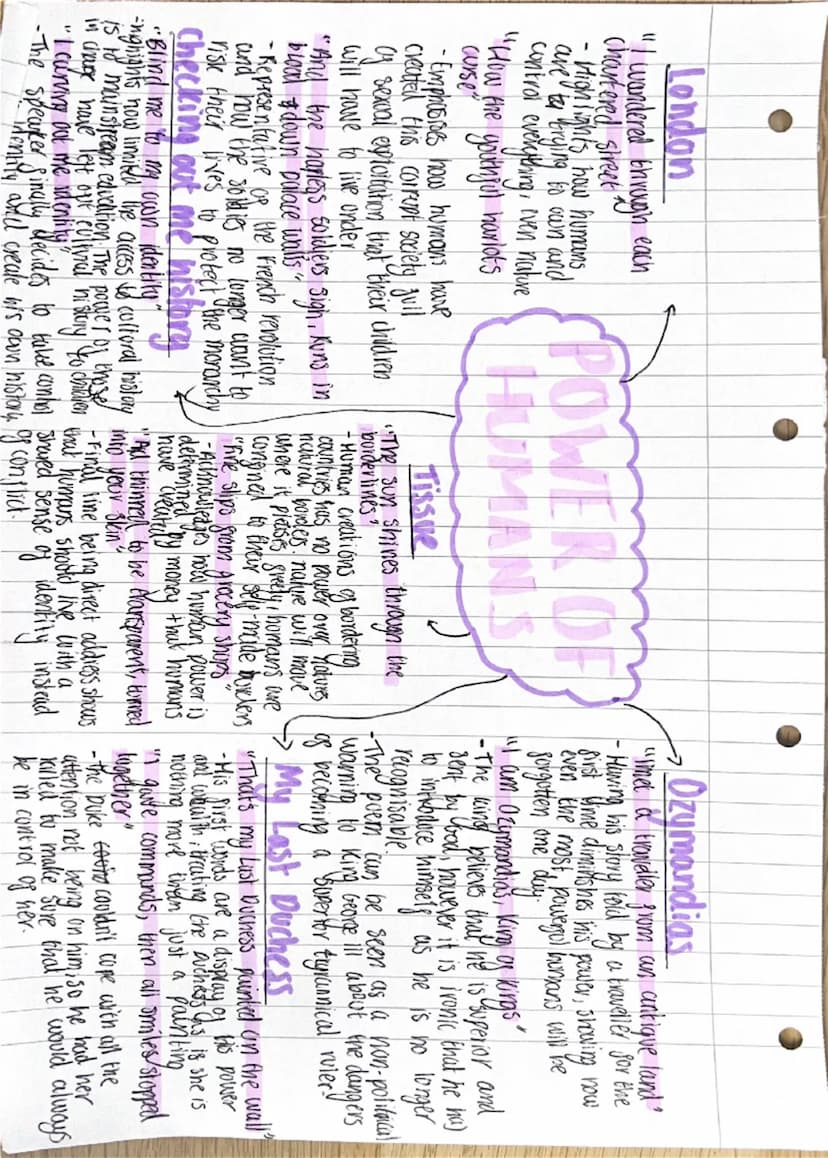 POWER OF
HUMANS
London
"I wandered through each
chartered street"
- Highlights how humans
are trying to own and
control everything, even nature
"How the youthful harlots
curse"
- Emphasises how humans have
created this corrupt society full
of sexual exploitation that their children
will have to live under
"And the hapless soldiers sigh, Runs in
blood down palace walls"
- Representative of the French revolution
and how the soldies no longer want to
risk their lives to protect the monarchy
Checking out me history
"Blind me to my own identity"
- highlights how limited the access to cultural history
is to mainstream education. The power of those
in charge have left out cultural history to children
"I carving out me identity"
- The speaker finally decides to take control
of identity and create his own history
Tissue
"The sun shines through the
borderlines"
- Human creations of bordering
countries has no power over natures
natural borders. nature will move
where it pleases freely, humans are
confined to their self-made borders
"Fine slips from grocery shops"
- Acknowledges how human power is
determined by money that humans
have created
"And thinned to be transparent, turned
into your skin"
- Final line being direct address shows
that humans should live with a
shared sense of identity instead
of conflict.
Ozymandias
"I met a traveller from an antique land"
- Having his story told by a traveller for the
first time diminishes his power, showing how
even the most, powerful humans will be
forgotten one day.
"I am Ozymandias, King of Kings"
- The king believes that he is superior and
sent by God, however it is ironic that he has
to introduce himself as he is no longer
recognisable.
- The poem can be seen as a non-political
warning to King George III about the dangers
of becoming a superior tyrannical ruler
My Last Duchess
"That's my last Duchess painted on the wall"
- His first words are a display of his power
and wealth, treating the Duchess as is she is
nothing more than just a painting
"I gave commands, then all smiles stopped
together"
- The Duke couldn't cope with all the
attention not being on him, so he had her
killed to make sure that he would always
be in control of her.